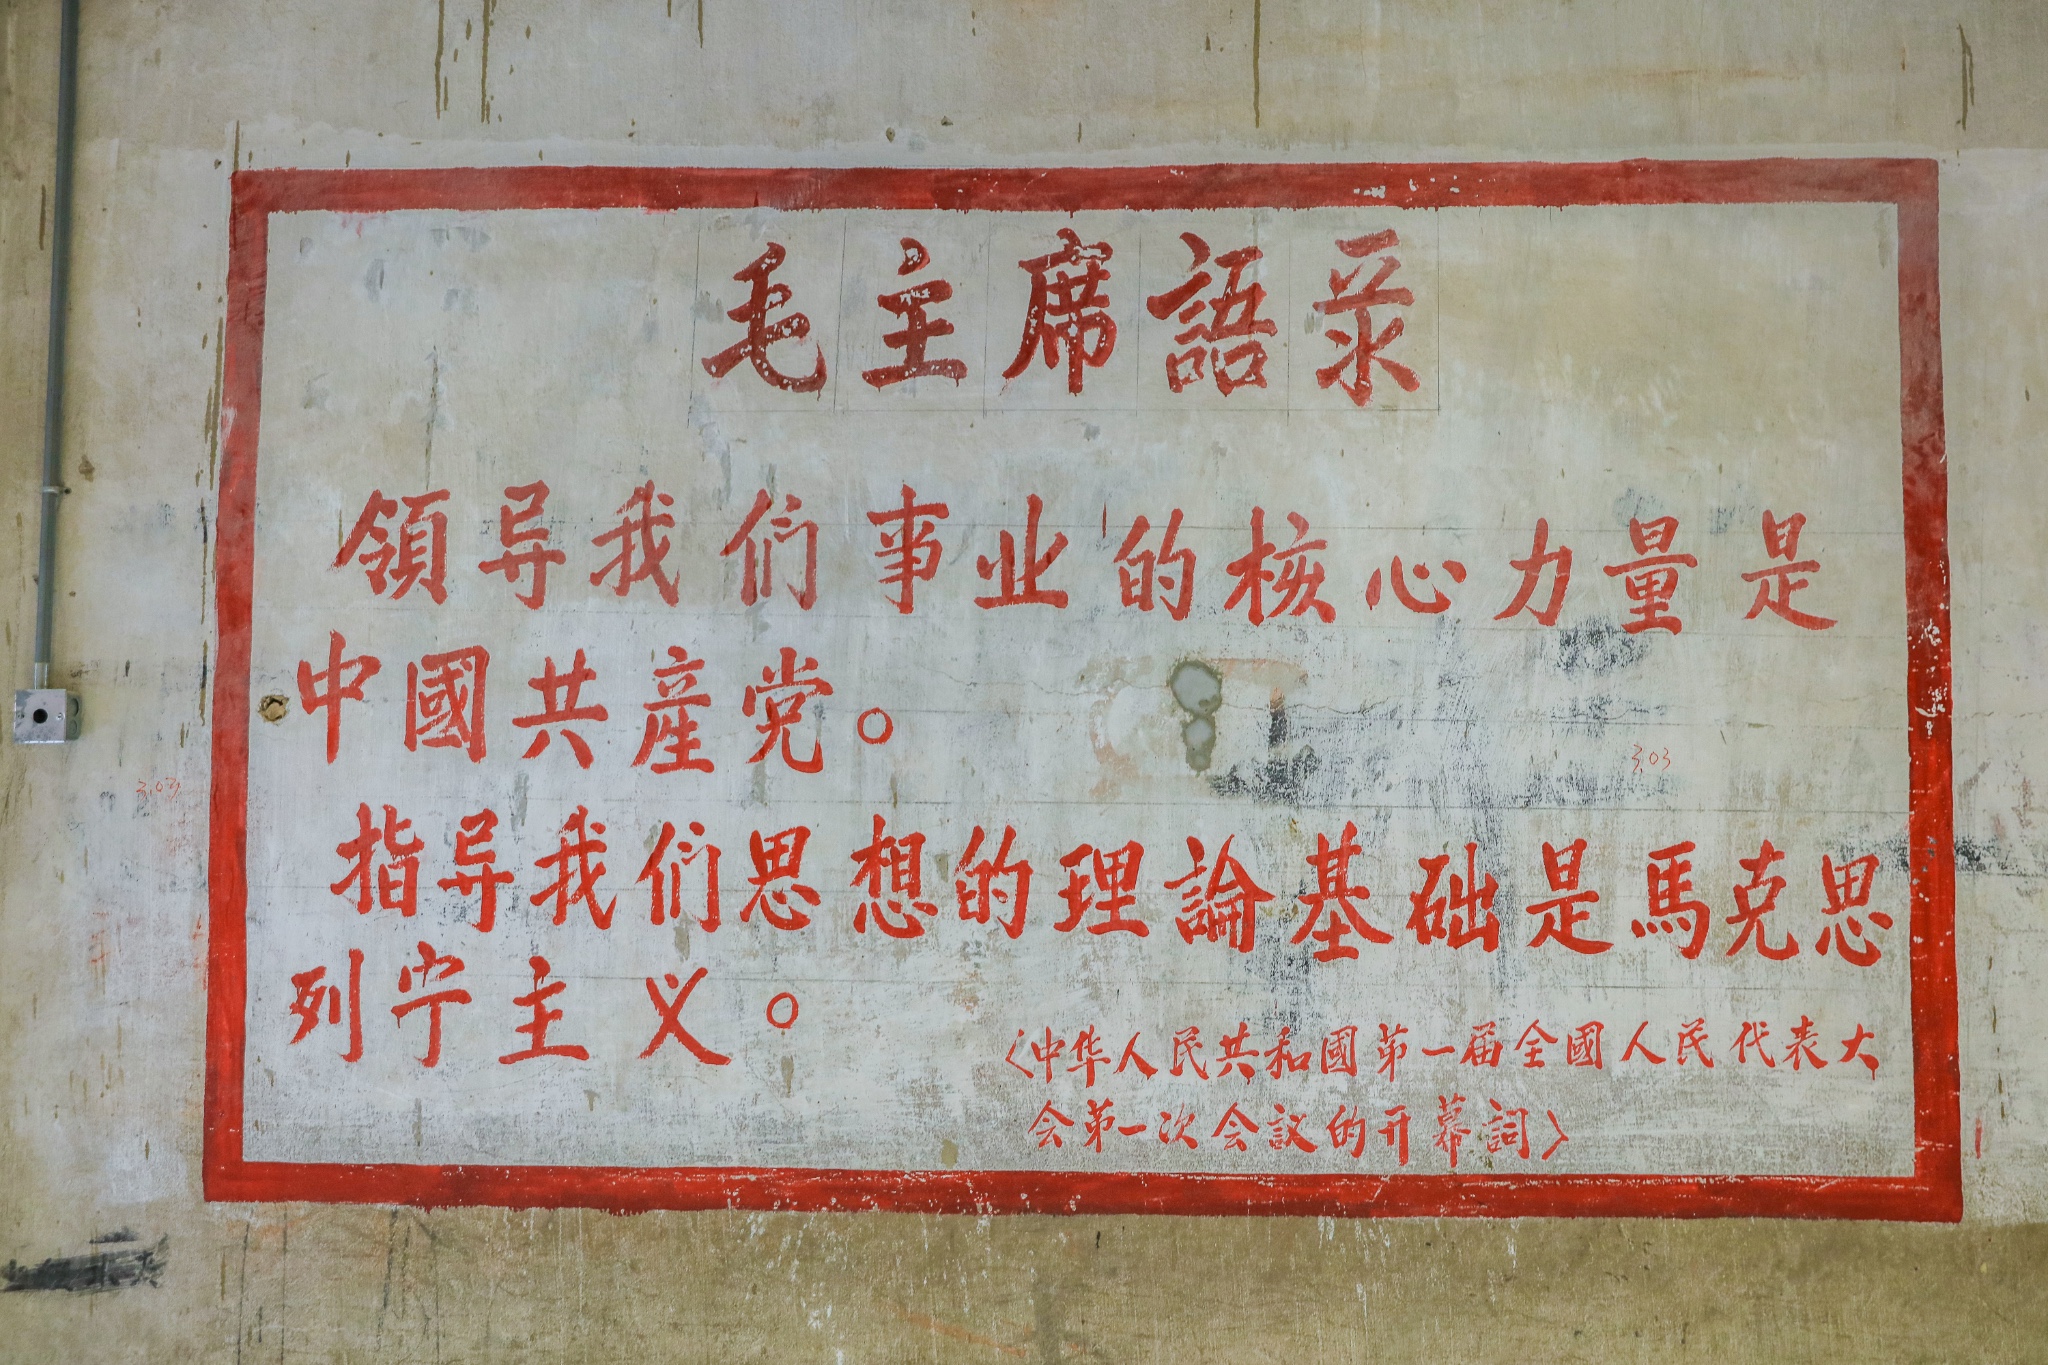 毛主席語录
領导我们事业的核心力量是
中國共產党。
指导我们思想的理論基础是馬克思
列宁主义。
〈中华人民共和國第一届全國人民代表大
会第一次会議的开幕詞〉